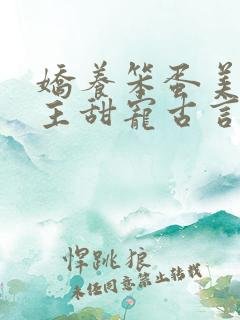 嬌養笨蛋美
王甜寵古言
悍跳狼
未經同意禁止轉載